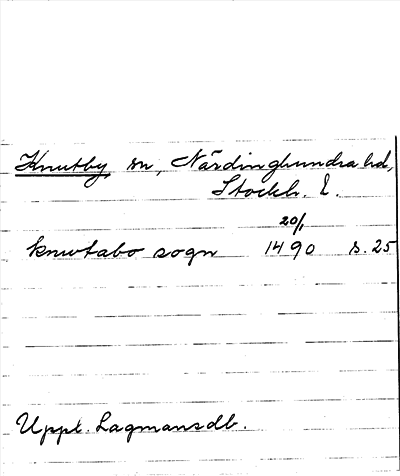 Knutby, sn, Närdinghundra hd,
Stockh. L.
20/1
knwtabo sogn 1490 s. 25
Uppl. Lagmansdb.